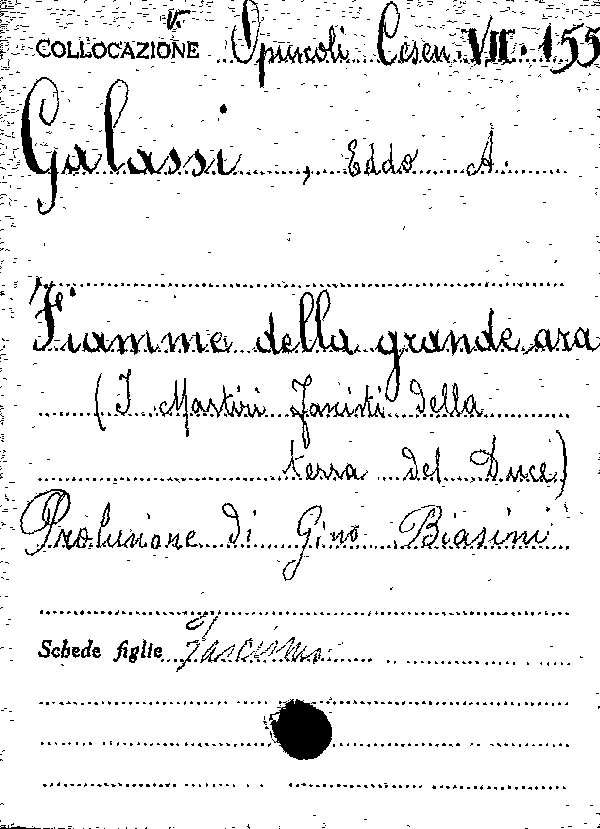 V.
COLLOCAZIONE Opuscoli Cesen. VII. 155
Galassi, Eddo A.
Fiamme della grande ara
(I Martiri Fascisti della
terra del Duce)
Prolusione di Gino Biasini
Schede figlie Fascismo